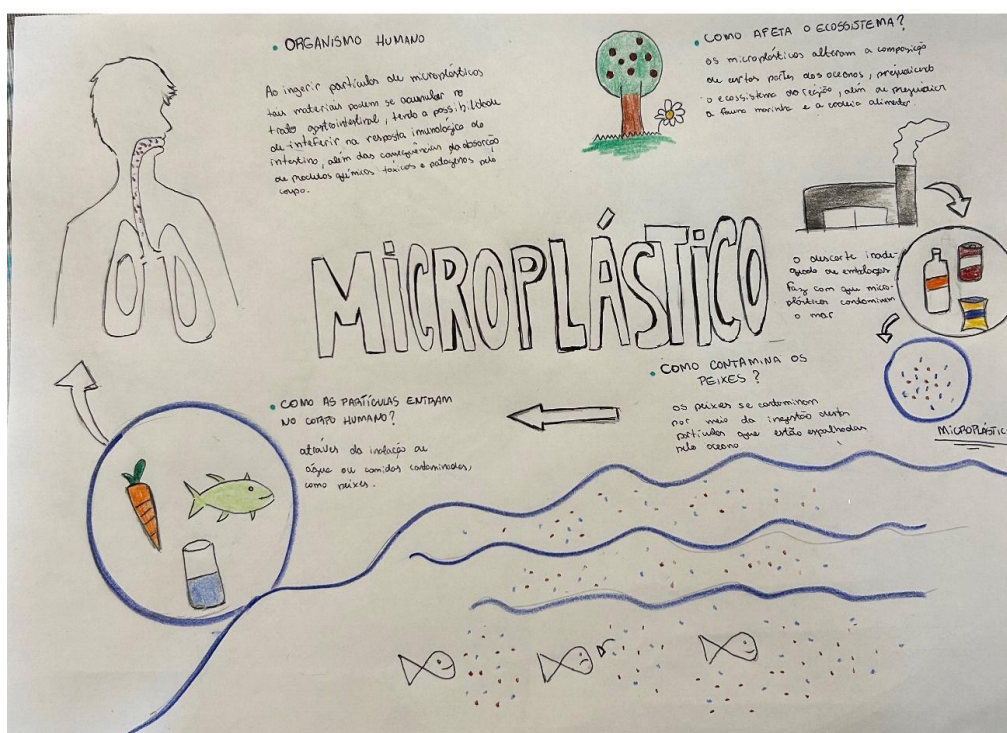 • ORGANISMO HUMANO
Ao ingerir partículas de microplásticos
tais materiais podem se acumular no
trato gastrointestinal, tendo a possibilidade
de inteferir na resposta imunológica do
intestino, além das consequências da absorção
de produtos químicos tóxicos e patógenos pelo
corpo.
• COMO AFETA O ECOSSISTEMA?
os microplásticos alteram a composição
de certas partes dos oceanos, prejudicando
o ecossistema da região, além de prejudicar
a fauna marinha e a cadeia alimentar.
MICROPLÁSTICO
o descarte inade-
quado de embalagens
faz com que micro-
plásticos contaminem
o mar
MICROPLÁSTIC
• COMO CONTAMINA OS
PEIXES?
os peixes se contaminam
por meio da ingestão destas
partículas que estão espalhadas
pelo oceano
• COMO AS PARTÍCULAS ENTRAM
NO CORPO HUMANO?
através da inalação ou
água ou comidas contaminadas,
como peixes.